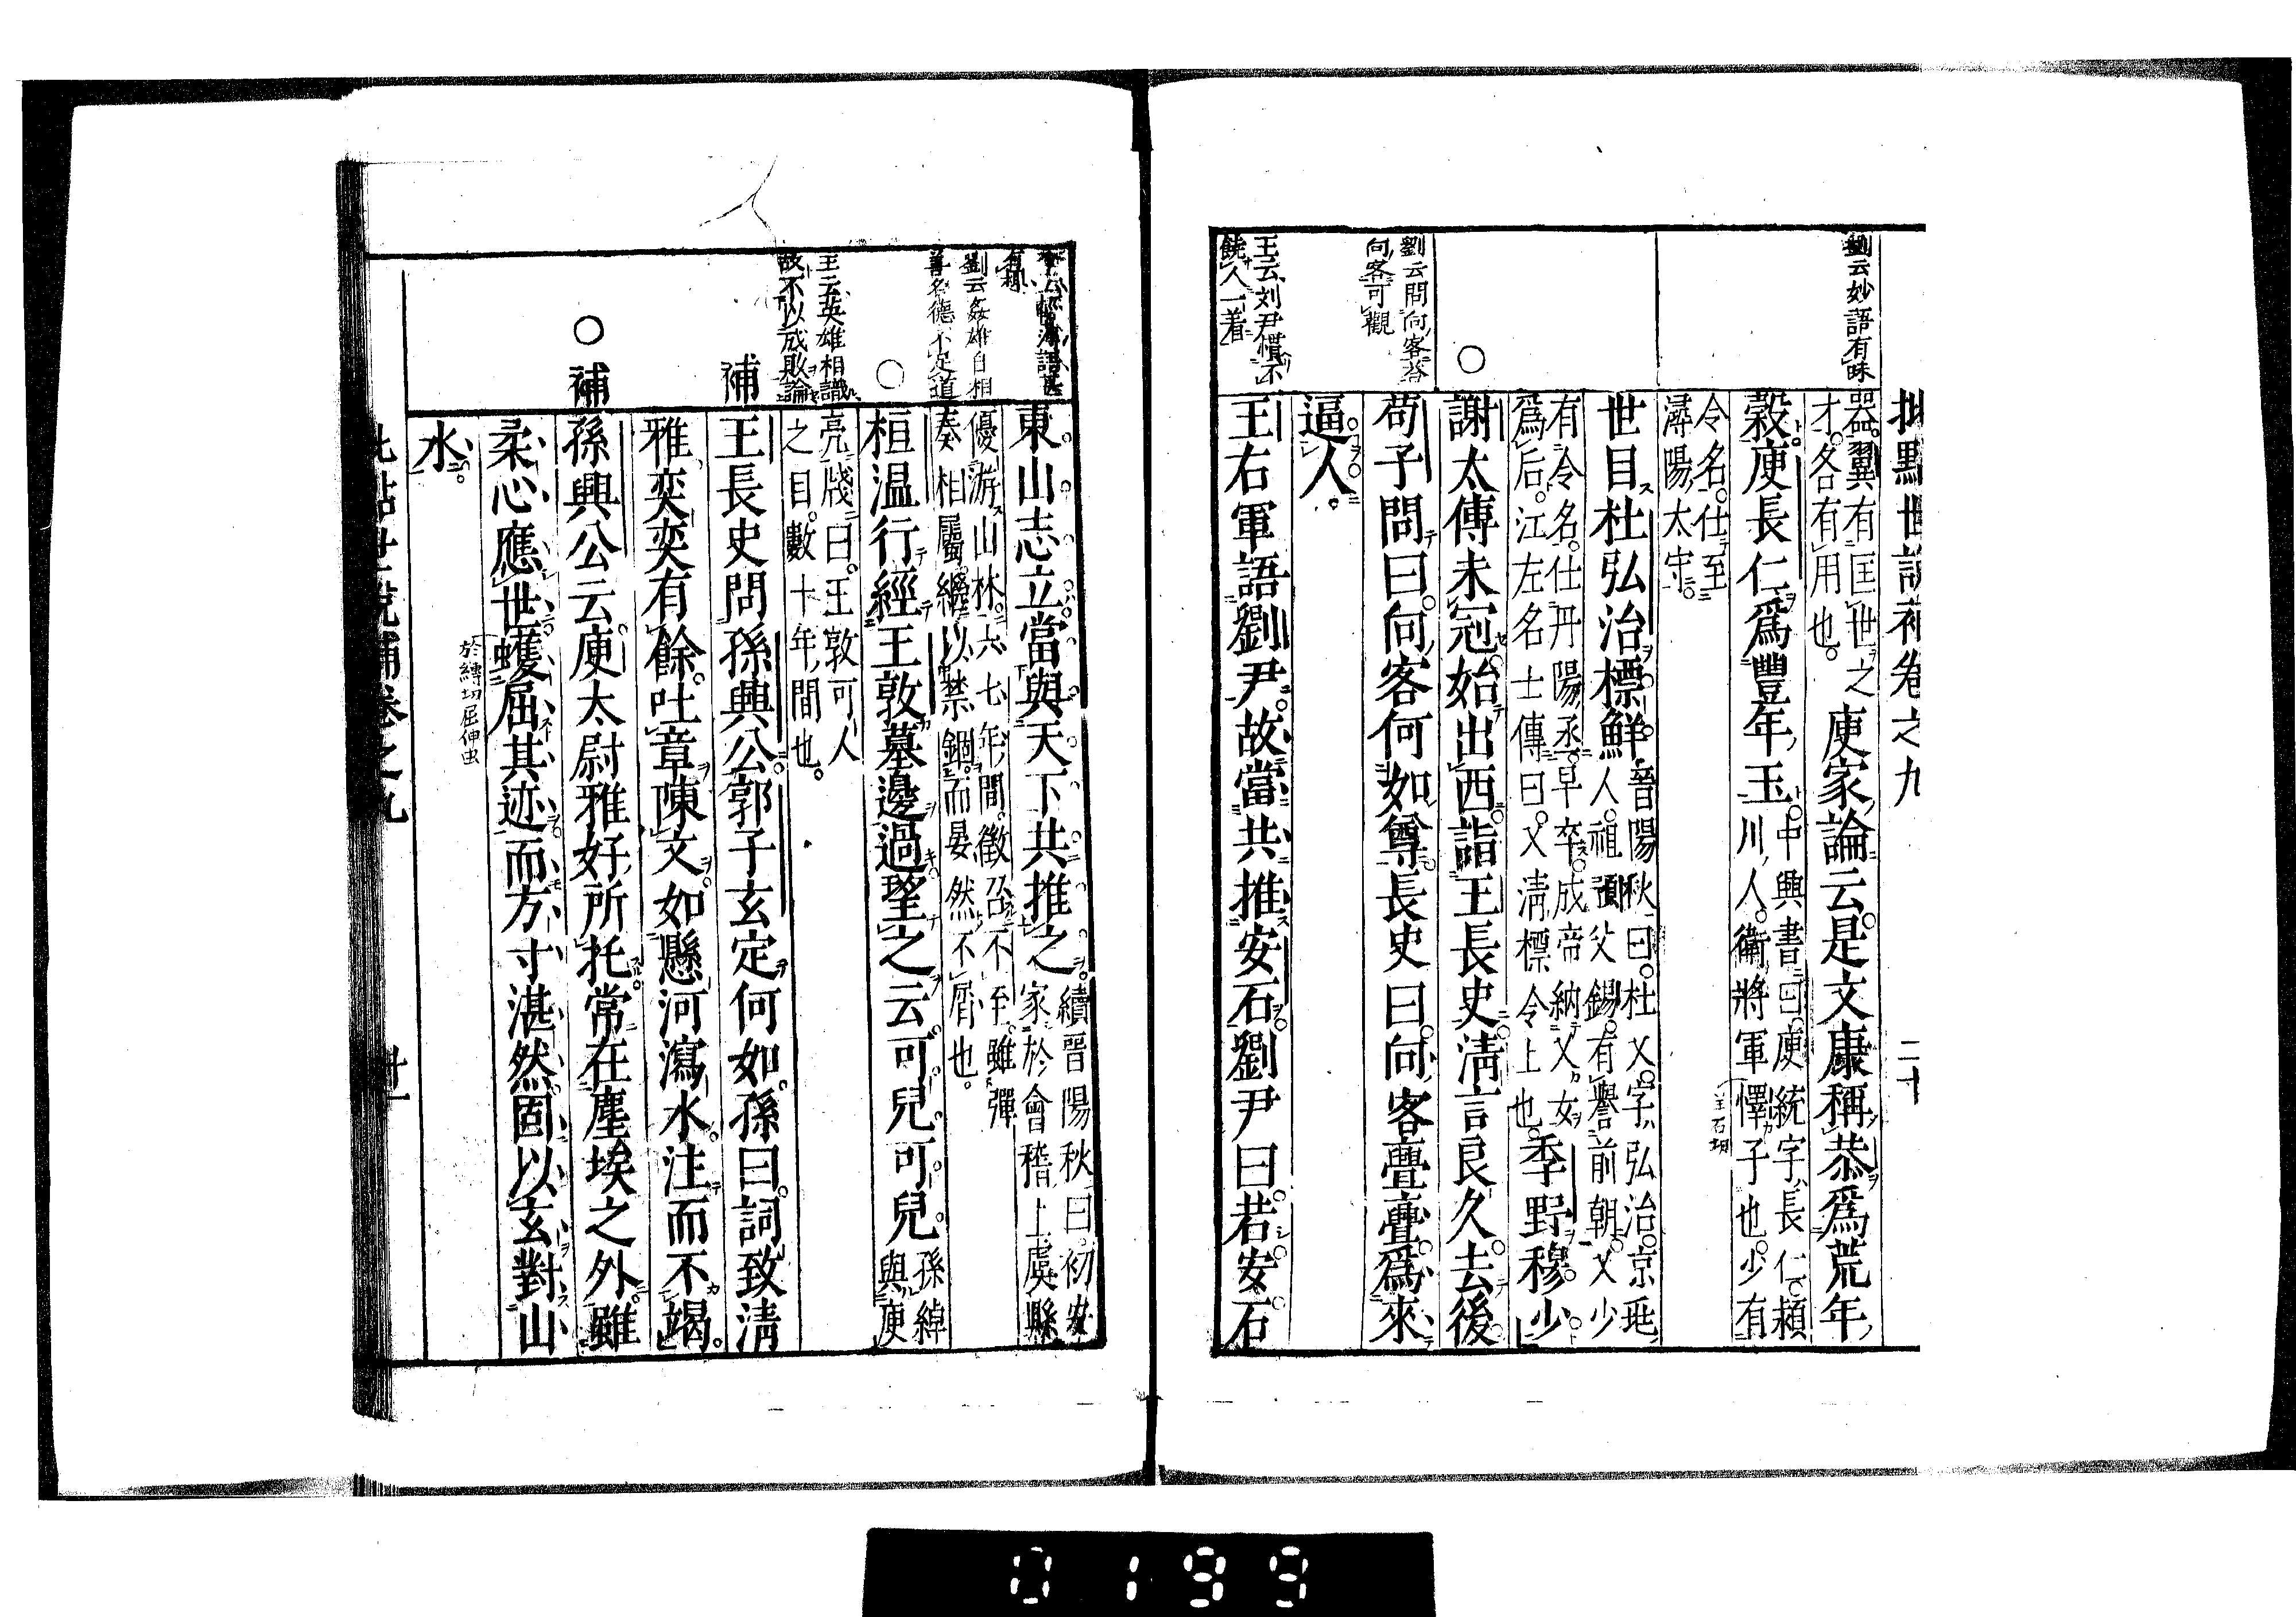 批點世說補卷之九 二十
劉云妙語有味
器翼有匡世之
才各有用也。庾家論云是文康稱恭爲荒年
穀庾長仁爲豐年玉中興書曰庾統字長仁潁
川人衛將軍懌子也少有
令名仕至
潯陽太守。
世目杜弘治標鮮晉陽秋曰杜乂字弘治京兆
人祖預父錫有譽前朝乂少
有令名仕丹陽丞早卒成帝納乂女
爲后江左名士傳曰乂淸標令上也季野穆少
○
謝太傅未冠始出西詣王長史淸言良久去後
劉云問向客荅
向客可觀
苟子問曰向客何如尊長史曰向客亹亹爲來
逼人。
王云刘尹慣不
饒人一着
王右軍語劉尹故當共推安石劉尹曰若安石
東山志立當與天下共推之續晉陽秋曰初安
家於會稽上虞縣
優游山林六七年間徵召不至雖彈
奏相屬繼以禁錮而晏然不屑也。
劉云姦雄自相
善名德不足道
○
桓温行經王敦墓邊過望之云可兒可兒孫綽
與庾
王云英雄相識
故不以成敗論
亮牋曰王敦可人
之目數十年間也。
補
王長史問孫興公郭子玄定何如孫曰詞致淸
雅奕奕有餘吐章陳文如懸河瀉水注而不竭。
○補
孫興公云庾太尉雅好所托常在塵埃之外雖
柔心應世蠖屈其迹而方寸湛然固以玄對山
於縛切屈伸虫
水。
世說補卷之九 廿一
0199